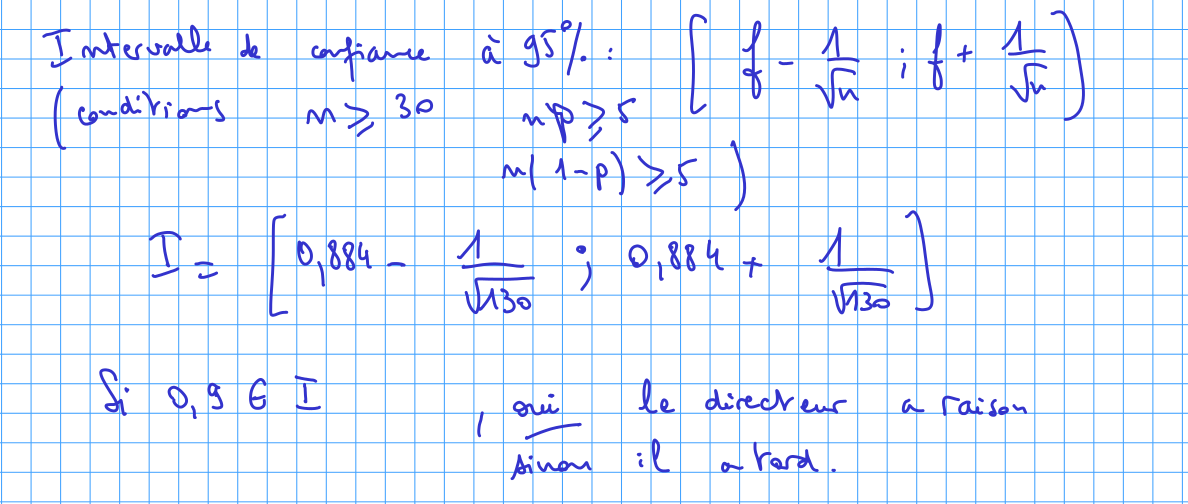 Intervalle de confiance à 95%: [ f - 1/√n ; f + 1/√n ]
(conditions n ⩾ 30 np ⩾ 5
n(1-p) ⩾ 5 )
I = [ 0,884 - 1/√130 ; 0,884 + 1/√130 ]
Si 0,9 ∈ I , oui le directeur a raison
sinon il a tord.